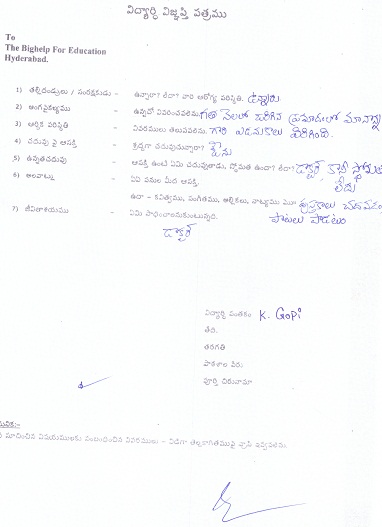 విద్యార్థి విజ్ఞప్తి పత్రము
To
The Bighelp For Education
Hyderabad.
1) తల్లిదండ్రులు / సంరక్షకుడు - ఉన్నారా? లేదా? వారి ఆరోగ్య పరిస్థితి. ఉన్నారు
2) అంగవైకల్యము - ఉన్నచో వివరించవలెను. గత నెలలో జరిగిన ప్రమాదంలో మా నాన్న
3) ఆర్థిక పరిస్థితి - వివరములు తెలుపవలెను. గారి ఎడమకాలు విరిగింది.
4) చదువు పై ఆసక్తి - శ్రద్ధగా చదువుచున్నారా? ఔను
5) ఉన్నతచదువు - ఆసక్తి ఉంటే ఏమి చదువుతాడు, స్తోమత ఉందా? లేదా? డాక్టర్ కానీ స్తోమత
లేదు
6) అలవాట్లు - ఏ ఏ పనుల మీద ఆసక్తి.
ఉదా - కవిత్వము, సంగీతము, ఆల్బికలు, నాట్యము మొ పుస్తకాలు చదవడం,
పాటలు పాడటం
7) జీవితాశయము - ఏమి సాధించాలనుకుంటున్నది.
డాక్టర్
విద్యార్థి సంతకం K. Gopi
తేది.
తరగతి
పాఠశాల పేరు
పూర్తి చిరునామా
సూచించిన విషయములకు సంబంధించిన వివరములు - విడిగా తెల్లకాగితముపై వ్రాసి ఇవ్వవలెను.